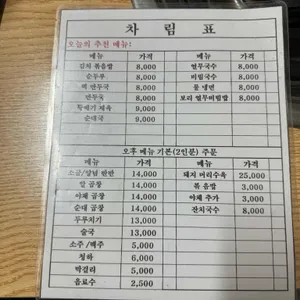 차 림 표
오늘의 추천 메뉴:
메뉴 가격 메뉴 가격
김치 볶음밥 8,000 열무국수 8,000
순두부 8,000 비빔국수 8,000
떡 만두국 8,000 물 냉면 8,000
만두국 8,000 보리 열무비빔밥 8,000
황태기 제육 9,000
순대국 9,000
오후 메뉴 기본(2인분) 주문
메뉴 가격 메뉴 가격
소금/양념 반반 14,000 돼지 머리수육 25,000
알 곱창 14,000 볶음밥 3,000
야채 곱창 14,000 야채 추가 3,000
순대 곱창 14,000 잔치국수 8,000
두루치기 13,000
술국 13,000
소주 /맥주 5,000
청하 6,000
막걸리 5,000
음료수 2,500